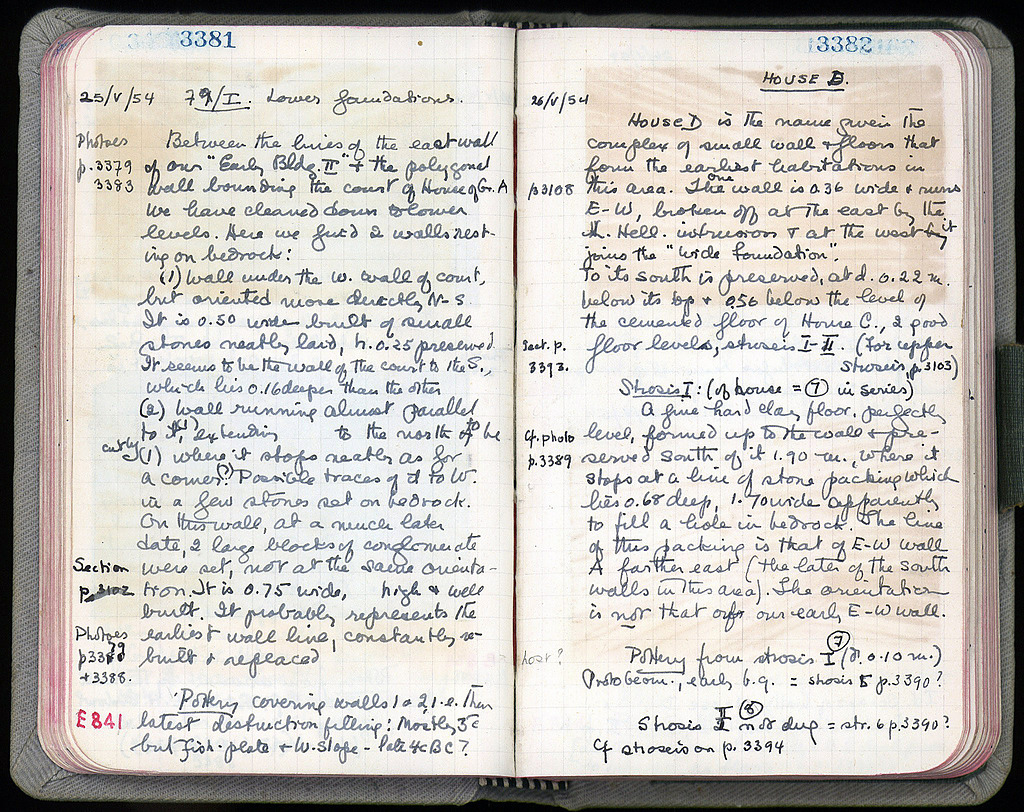 3381
25/V/54 79/I. Lower foundations.
Photoes
p.3379
3383
Between the lines of the east wall
of our "Early Bldg. II" + the polygonal
wall bounding the court of House of Gr. A
we have cleaned down to lower
levels. Here we find 2 walls rest-
ing on bedrock:
(1) wall under the w. wall of court,
but oriented more directly N-S.
It is 0.50 wide built of small
stones neatly laid, h. 0.25 preserved.
It seems to be the wall of the court to the S.,
which lies 0.16 deeper than the other
(2) wall running almost parallel
to it, extending to the north of
(1) where it stops neatly as for
a corner(?) Possible traces of it to W.
in a few stones set on bedrock.
On this wall, at a much later
date, 2 large blocks of conglomerate
were set, not at the same orienta-
tion. It is 0.75 wide, high + well
built. It probably represents the
earliest wall line, constantly re-
built + replaced
Section
p.3102
Photoes
+3388.
E841
Pottery covering walls 1 + 2, i.e. their
latest destruction filling: Mostly 5c
but fish-plate + W. Slope - late 4c BC?
3382
HOUSE D.
26/V/54
House D is the name given the
complex of small wall + floors that
form the earliest habitations in
p3108
this area. The one wall is 0.36 wide + runs
E-W, broken off at the east by the
Hell. intrusions + at the west it
joins the "wide foundation".
To its south is preserved, at d. 0.22 m.
below its top + 0.56 below the level of
the cemented floor of House C., 2 good
Sect. p.
3393.
floor levels, strosis I-II. (For upper
strosis, p.3103)
Strosis I: (of house = 7 in series)
A fine hard clay floor, perfectly
Cf. photo
p.3389
level, formed up to the wall + pre-
served south of it 1.90 m., where it
stops at a line of stone packing which
lies 0.68 deep, 1.70 wide apparently
to fill a hole in bedrock. The line
of this packing is that of E-W wall
A farther east (the later of the south
walls in this area). The orientation
is not that of our early E-W wall.
Pottery from strosis I 7 (d. 0.10 m.)
Protogeom., early b.g. = strosis 5 p.3390?
Strosis II 8 not dug = str. 6 p.3390?
Cf strosis on p. 3394